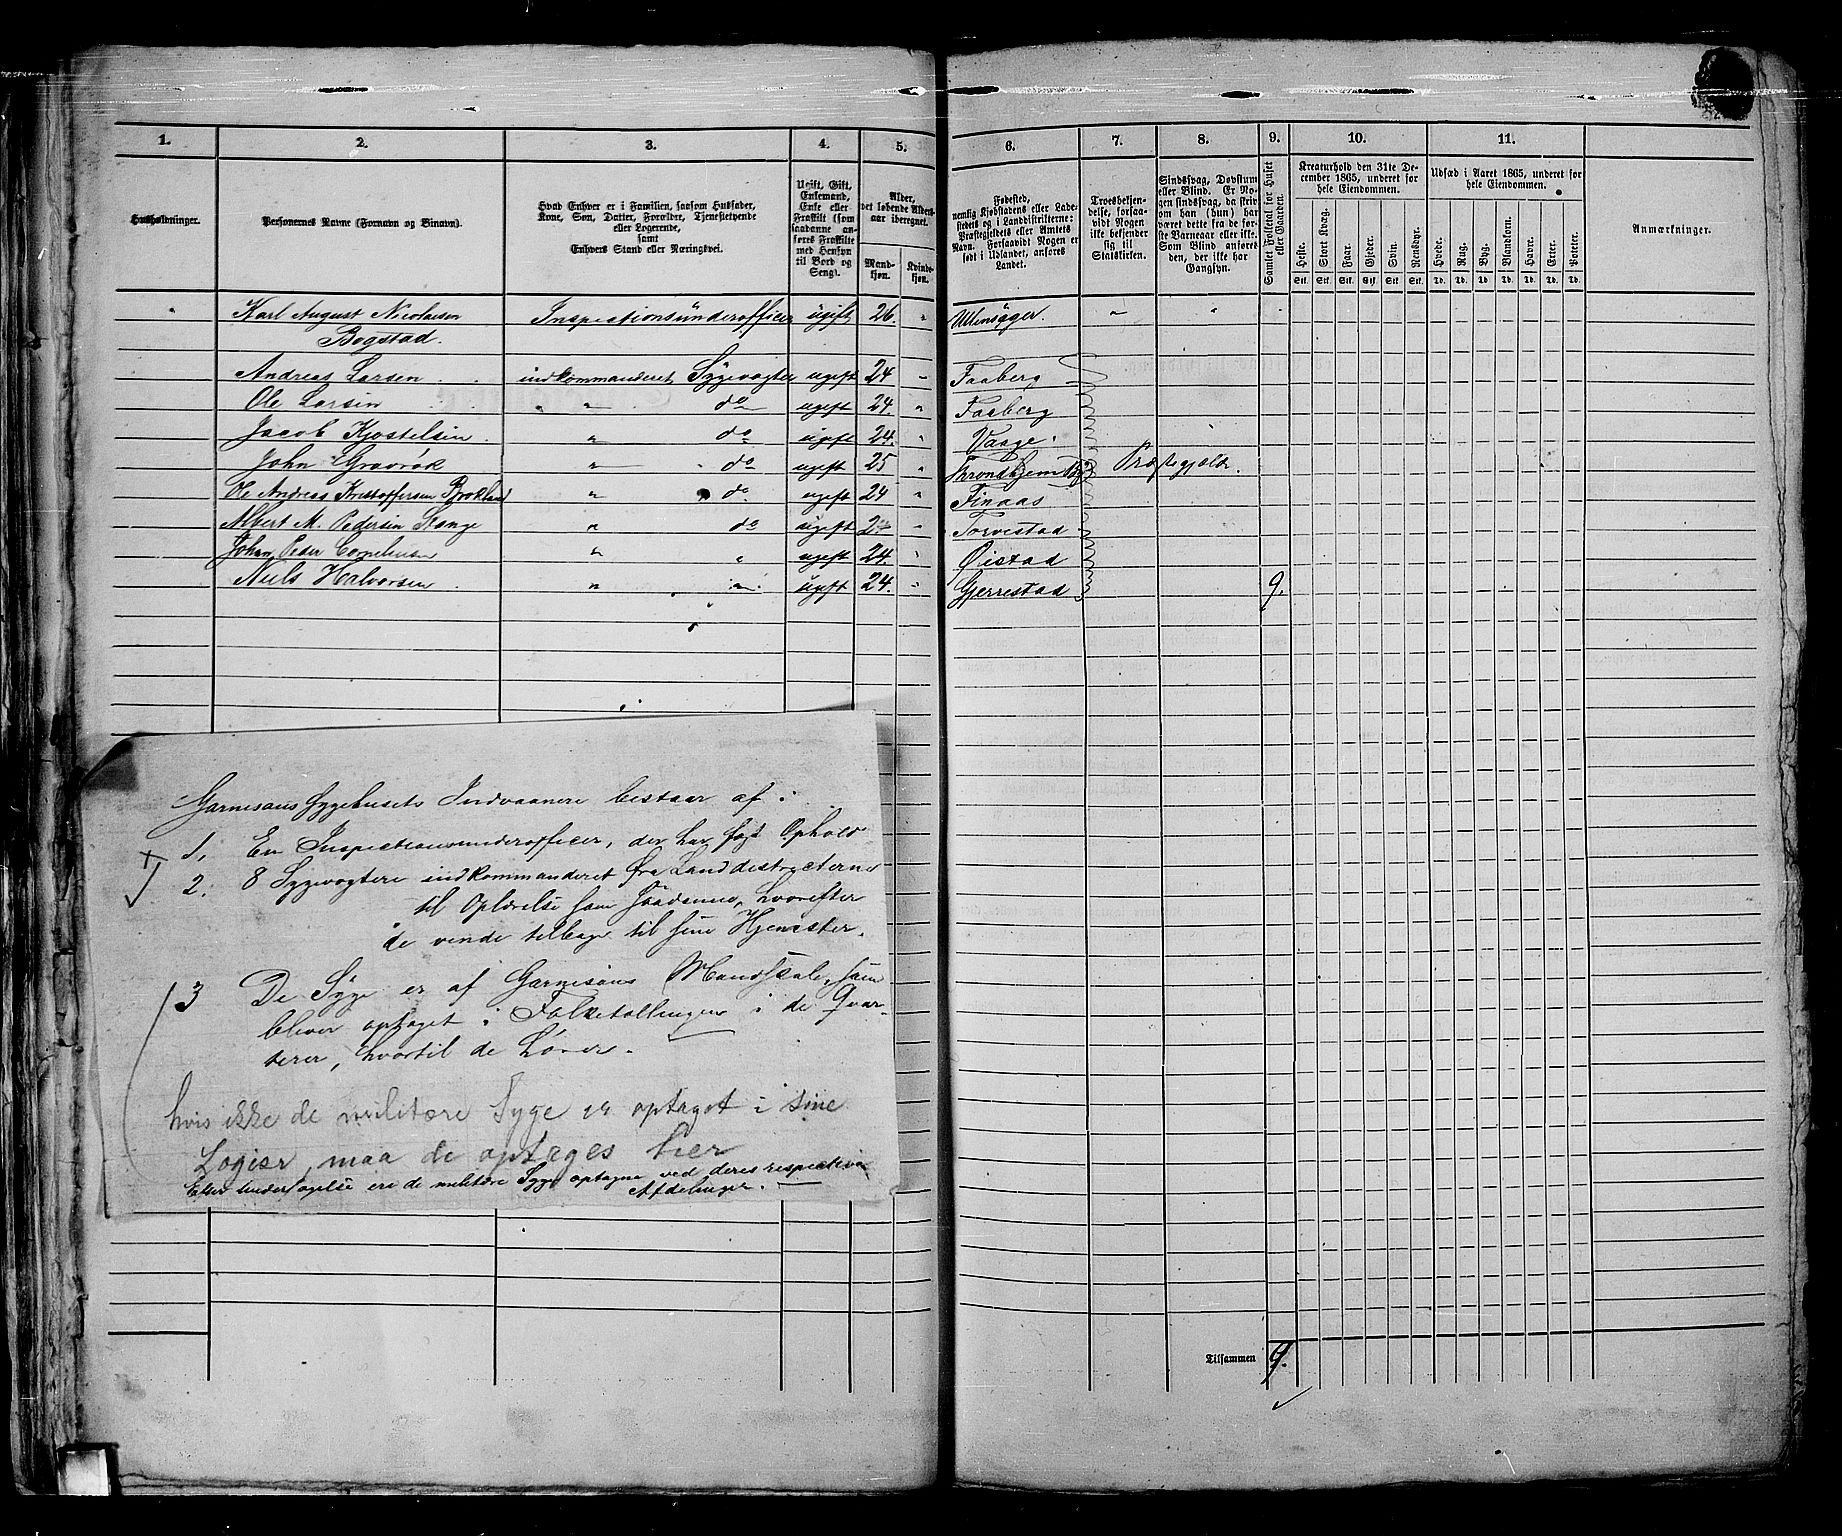 1. 2. 3. 4. 5. 6. 7. 8. 9. 10. 11.
Husholdninger.
Personernes Navne (Fornavn og Binavn).
Hvad Enhver er i Familien, saasom Husfader,
Kone, Søn, Datter, Forældre, Tjenestetyende
eller Logerende,
samt
Enhvers Stand eller Næringsvei.
Ugift, Gift,
Enkemand,
Enke eller
Fraskilt (som
saadanne an-
føres Fraskilte
med Hensyn
til Bord og
Seng).
Alder,
det løbende Alders-
aar iberegnet.
Mand-
kjøn.
Kvinde-
kjøn.
Fødested,
nemlig Kjøbstadens eller Lade-
stedets og i Landdistrikterne:
Præstegjeldets eller Amtets
Navn. Forsaavidt Nogen er
født i Udlandet, anføres
Landet.
Troesbekjen-
delse, forsaa-
vidt Nogen
ikke bekjender
sig til
Statskirken.
Sindssvag, Døvstum
eller Blind. Er No-
gen sindssvag, da skriv
om han (hun) har
været dette fra de før-
ste Barneaar eller ikke.
Som Blind anføres
den, der ikke har
Gangsyn.
Samlet Folketal for Huset
eller Gaarden.
Kreaturhold den 31te De-
cember 1865, underet for
hele Eiendommen.
Heste. Stort Kvæg. Faar. Gjeder. Svin. Rensdyr.
Stk. Stk. Stk. Stk. Stk. Stk.
Udsæd i Aaret 1865, underet for
hele Eiendommen.
Hvede. Rug. Byg. Blandkorn. Havre. Erter. Poteter.
Td. Td. Td. Td. Td. Td. Td.
Anmærkninger.
Karl August Nicolaisen Inspectionsünderofficier ugift 26. " Ullensager. " "
Bogstad.
Andreas Larsen indkommanderet Sygevogter ugift 24 " Faaberg
Ole Larsen " do ugift 24. " Faaberg
Jacob Kjostelsen " do ugift 24. " Vaage.
John Gravrok " do ugift 25 " Throndhjems Præstegjeld.
Ole Andreas Kristoffersen " do ugift 24 " Finaas
Albert M. Pedersen Stange " do ugift " Torvestad
Johan Peder Cornelius " " ugift 24. " Øistad
Niels Halvorsen " " ugift 24. " Gjerrestad 9.
Garnisons Sygehusets Indvaanere bestaar af:
1. En Inspectionsunderofficier, der har fast Ophold
2. 8 Sygevogtere indkommanderet fra Landdistricterne
til Oplærelse som saadanne, hvorefter
de vende tilbage til sine Hjemster.
3 De Syge er af Garnisons Mandskab, som
bliver optaget i Folketællingen i de Qvar-
terer, hvortil de hører.
hvis ikke de militære Syge er optaget i sine
Logier, maa de optages her
Efter Undersøgelse ere de militære Syge optagne ved deres respective
Afdelinger.
Tilsammen 9.